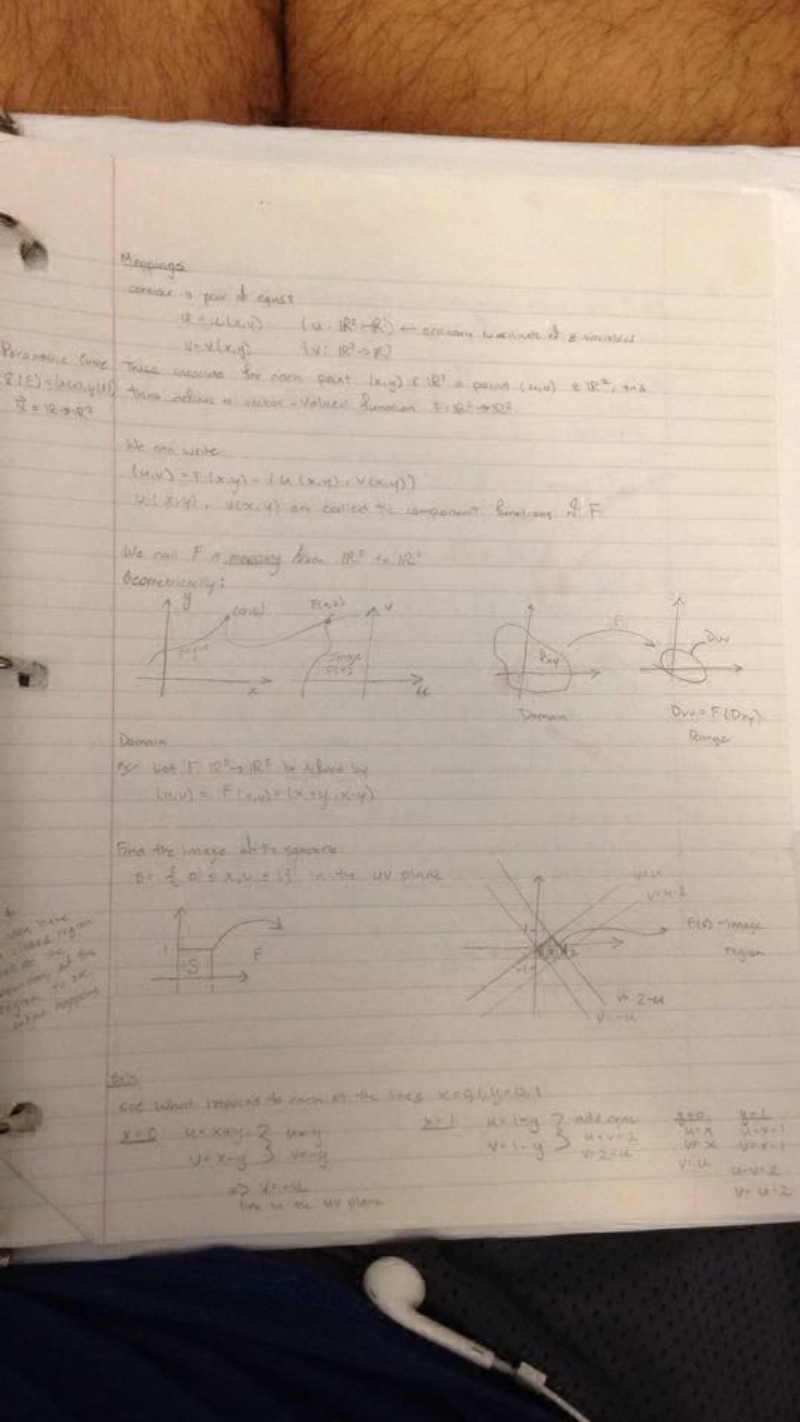 Mappings
consider a pair of eqns:
u = u(x,y) (u: R² → R) ← ordinary of 2 variables
v = v(x,y) (v: R² → R)
Parametric Curve
x⃗(t) = (x(t), y(t))
x⃗ = R → R²
These associate for each point (x,y) ∈ R² a point (u,v) ∈ R², and
thus defines a vector-valued function F: R² → R²
We can write
(u,v) = F(x,y) = (u(x,y), v(x,y))
u(x,y), v(x,y) are called the component functions of F
We call F a mapping from R² to R²
Geometrically:
y (a,b) F(a,b) v
Image
x u
Dxy F Duv
Domain Duv = F(Dxy)
Range
Domain
ex: Let F: R² → R² be defined by
(u,v) = F(x,y) = (x+y, x-y)
Find the image of the square
S = { 0 ≤ x,y ≤ 1 } in the uv plane
1 S F
1
v=u
v=u-2
F(S) - image
region
1 2
-1
v=2-u
v=-u
closed region
the
of the
region to see
what happens
Sol'n
see what happens to each of the lines x=0,1, y=0,1
x=0 u=x+y } u=y
v=x-y } v=-y
=> v=-u
line in the uv plane
x=1 u=1+y } add eqns
v=1-y } u+v=2
v=2-u
y=0
u=x
v=x
v=u
y=1
u=x+1
v=x-1
u-v=2
v=u-2